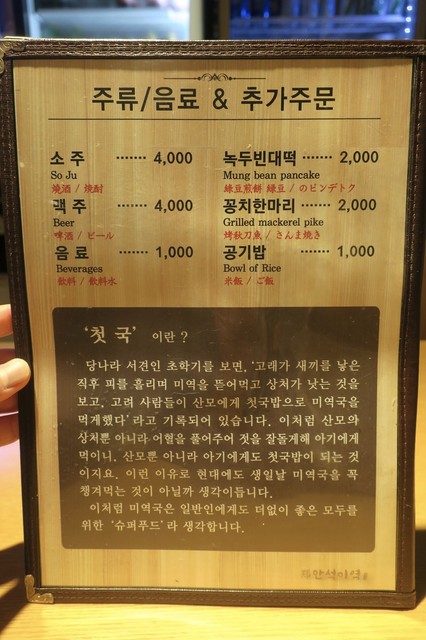 주류/음료 & 추가주문
소 주 ······· 4,000
So Ju
燒酒 / 焼酎
맥 주 ······· 4,000
Beer
啤酒 / ビール
음 료 ······· 1,000
Beverages
飮料 / 飲料水
녹두빈대떡 ······· 2,000
Mung bean pancake
綠豆煎餠 緑豆 / のピンデトク
꽁치한마리 ······· 2,000
Grilled mackerel pike
烤秋刀魚 / さんま焼き
공기밥 ······· 1,000
Bowl of Rice
米飯 / ご飯
'첫 국' 이란 ?
당나라 서견인 초학기를 보면, '고래가 새끼를 낳은
직후 피를 흘리며 미역을 뜯어먹고 상처가 낫는 것을
보고, 고려 사람들이 산모에게 첫국밥으로 미역국을
먹게했다' 라고 기록되어 있습니다. 이처럼 산모와
상처뿐 아니라 어혈을 풀어주어 젖을 잘돌게해 아기에게
먹이니, 산모뿐 아니라 아기에게도 첫국밥이 되는 것
이지요. 이런 이유로 현대에도 생일날 미역국을 꼭
챙겨먹는 것이 아닐까 생각이듭니다.
이처럼 미역국은 일반인에게도 더없이 좋은 모두를
위한 '슈퍼푸드' 라 생각합니다.